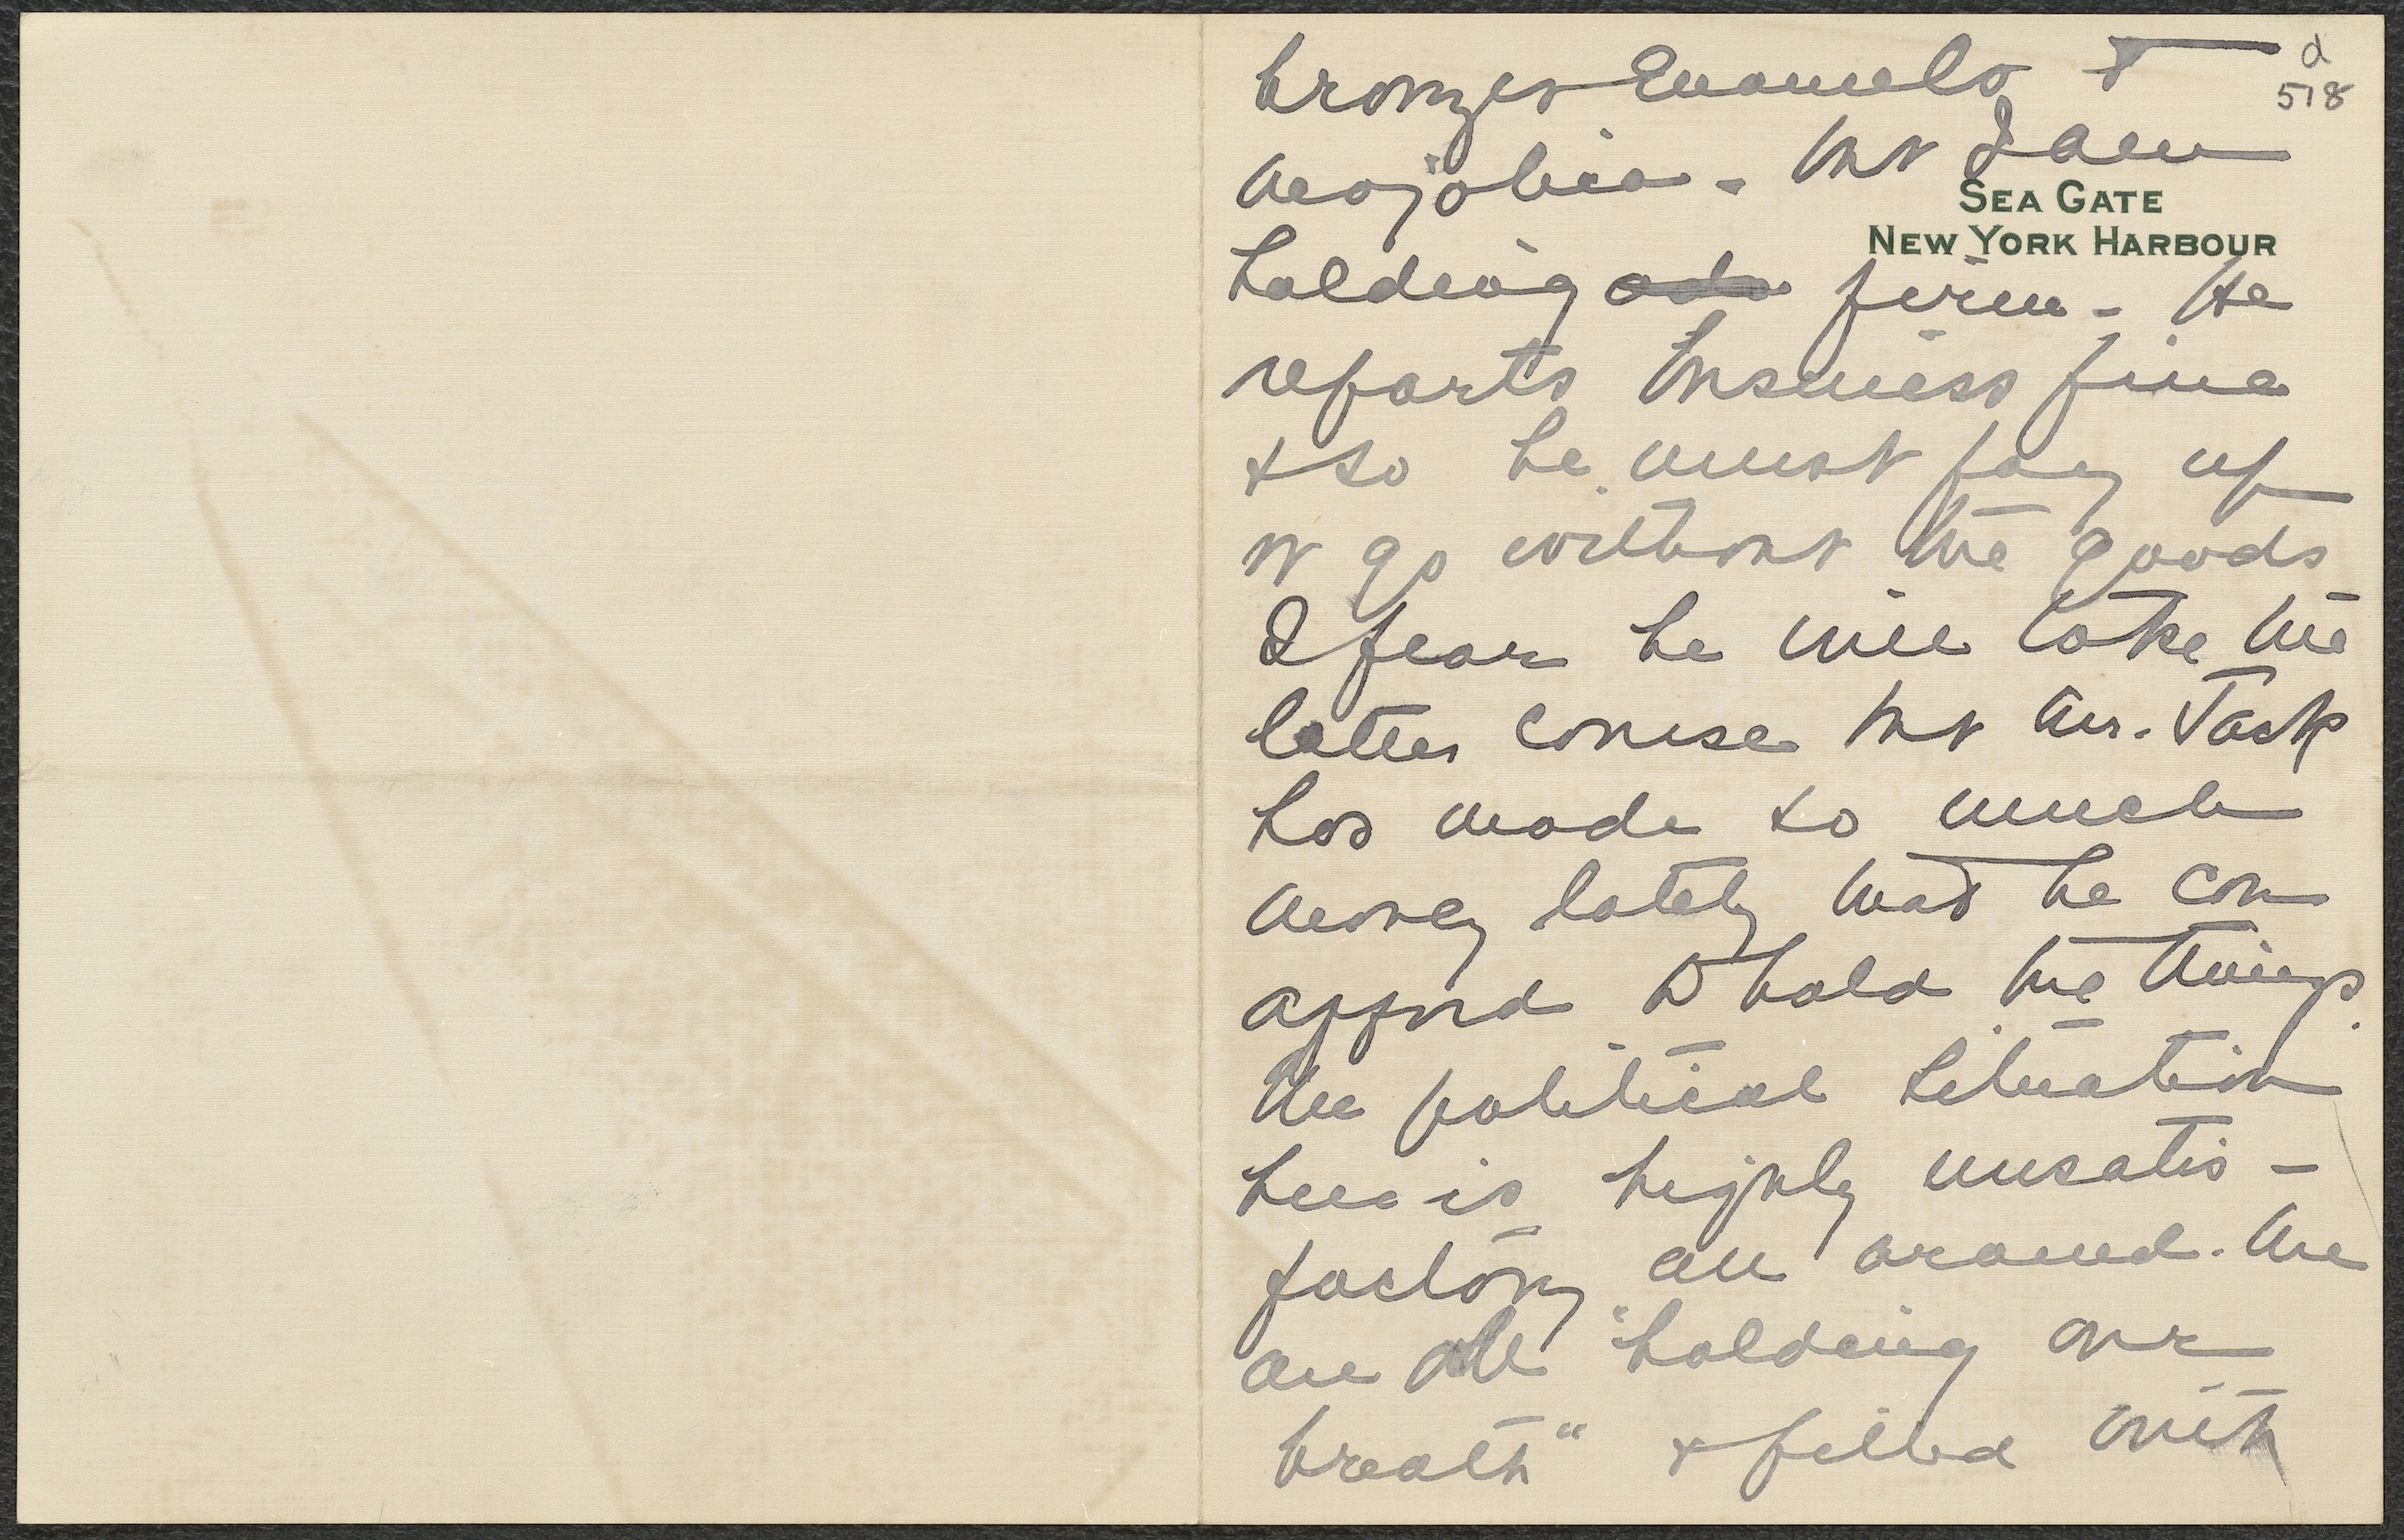 d
518
bronzes Enamels &
majolica. but I am
SEA GATE
NEW YORK HARBOUR
holding firm. He
reports business fine
& so he must pay up
or go without the goods
I fear he will take the
latter course but Mr. Jack
has made so much
money lately that he can
afford to hold the things.
The political situation
here is highly unsatis-
factory all around. We
are all "holding our
breath" & filled with